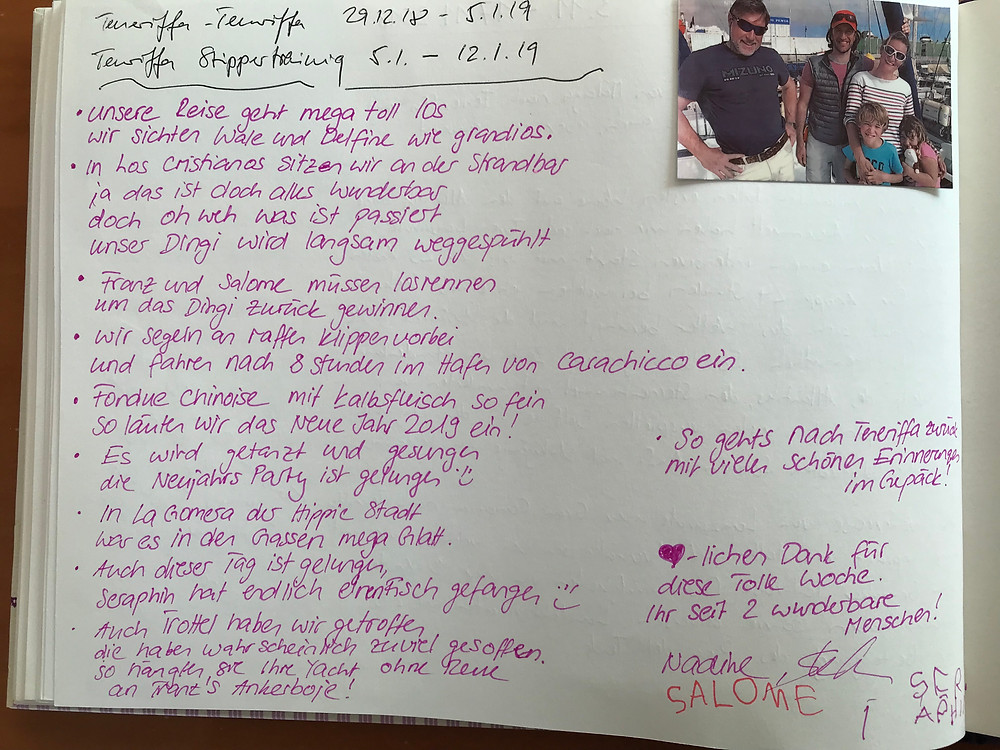 Teneriffa - Teneriffa 29.12.18 - 5.1.19
Teneriffa Skippertraining 5.1. - 12.1.19
• unsere Reise geht mega toll los
wir sichten Wale und Delfine wie grandios.
• In Los Cristianos sitzen wir an der Strandbar
ja das ist doch alles wunderbar
doch oh weh was ist passiert
unser Dingi wird langsam weggespühlt
• Franz und Salome müssen losrennen
um das Dingi zurück gewinnen.
• wir segeln an raffen klippen vorbei
und fahren nach 8 stunden im Hafen von Carachicco ein.
• Fondue Chinoise mit kalbsfleisch so fein
so läuten wir das Neue Jahr 2019 ein!
• Es wird getanzt und gesungen
die Neujahrs Party ist gelungen
• In La Gomera der Hippie Stadt
war es in den Gassen mega Glatt.
• Auch dieser Tag ist gelungen,
Seraphin hat endlich einen Fisch gefangen
• Auch Trottel haben wir getroffen
die haben wahrscheinlich zuviel gesoffen.
so hängten sie Ihre Yacht ohne Reue
an Franz's Ankerboje!
• So gehts nach Teneriffa zurück
mit vielen schönen Erinnerungen
im Gepäck!
♥-lichen Dank für
diese Tolle Woche.
Ihr seit 2 wunderbare
Menschen!
Nadine
SALOME
MIZUNO